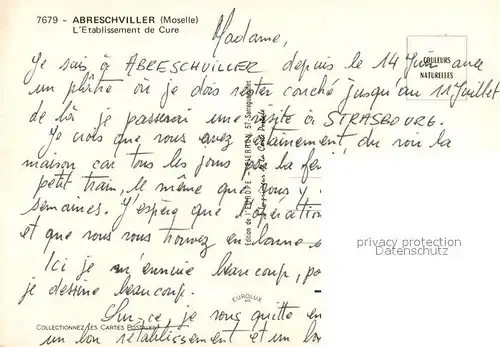 7679 - ABRESCHVILLER (Moselle)
L'Etablissement de Cure
Madame,
COULEURS
NATURELLES
Je suis à ABRESCHVILLER depuis le 14 Juin avec
un plâtre où je dois rester couché jusqu'au 11 Juillet
de là je passerai une visite à STRASBOURG.
Je crois que vous avez certainement du voir la
maison car tous les jours par la fe
petit train, le même que vous y
semaines. J'espère que l'opération
et que vous vous trouvez en bonne s
Ici je m'ennuie beaucoup, po
je dessine beaucoup.
Sur-ce, je vous quitte en
un bon rétablissement et un bo
COLLECTIONNEZ LES CARTES POSTALES
Edition de l'EUROPE
EUROLUX
privacy protection
Datenschutz